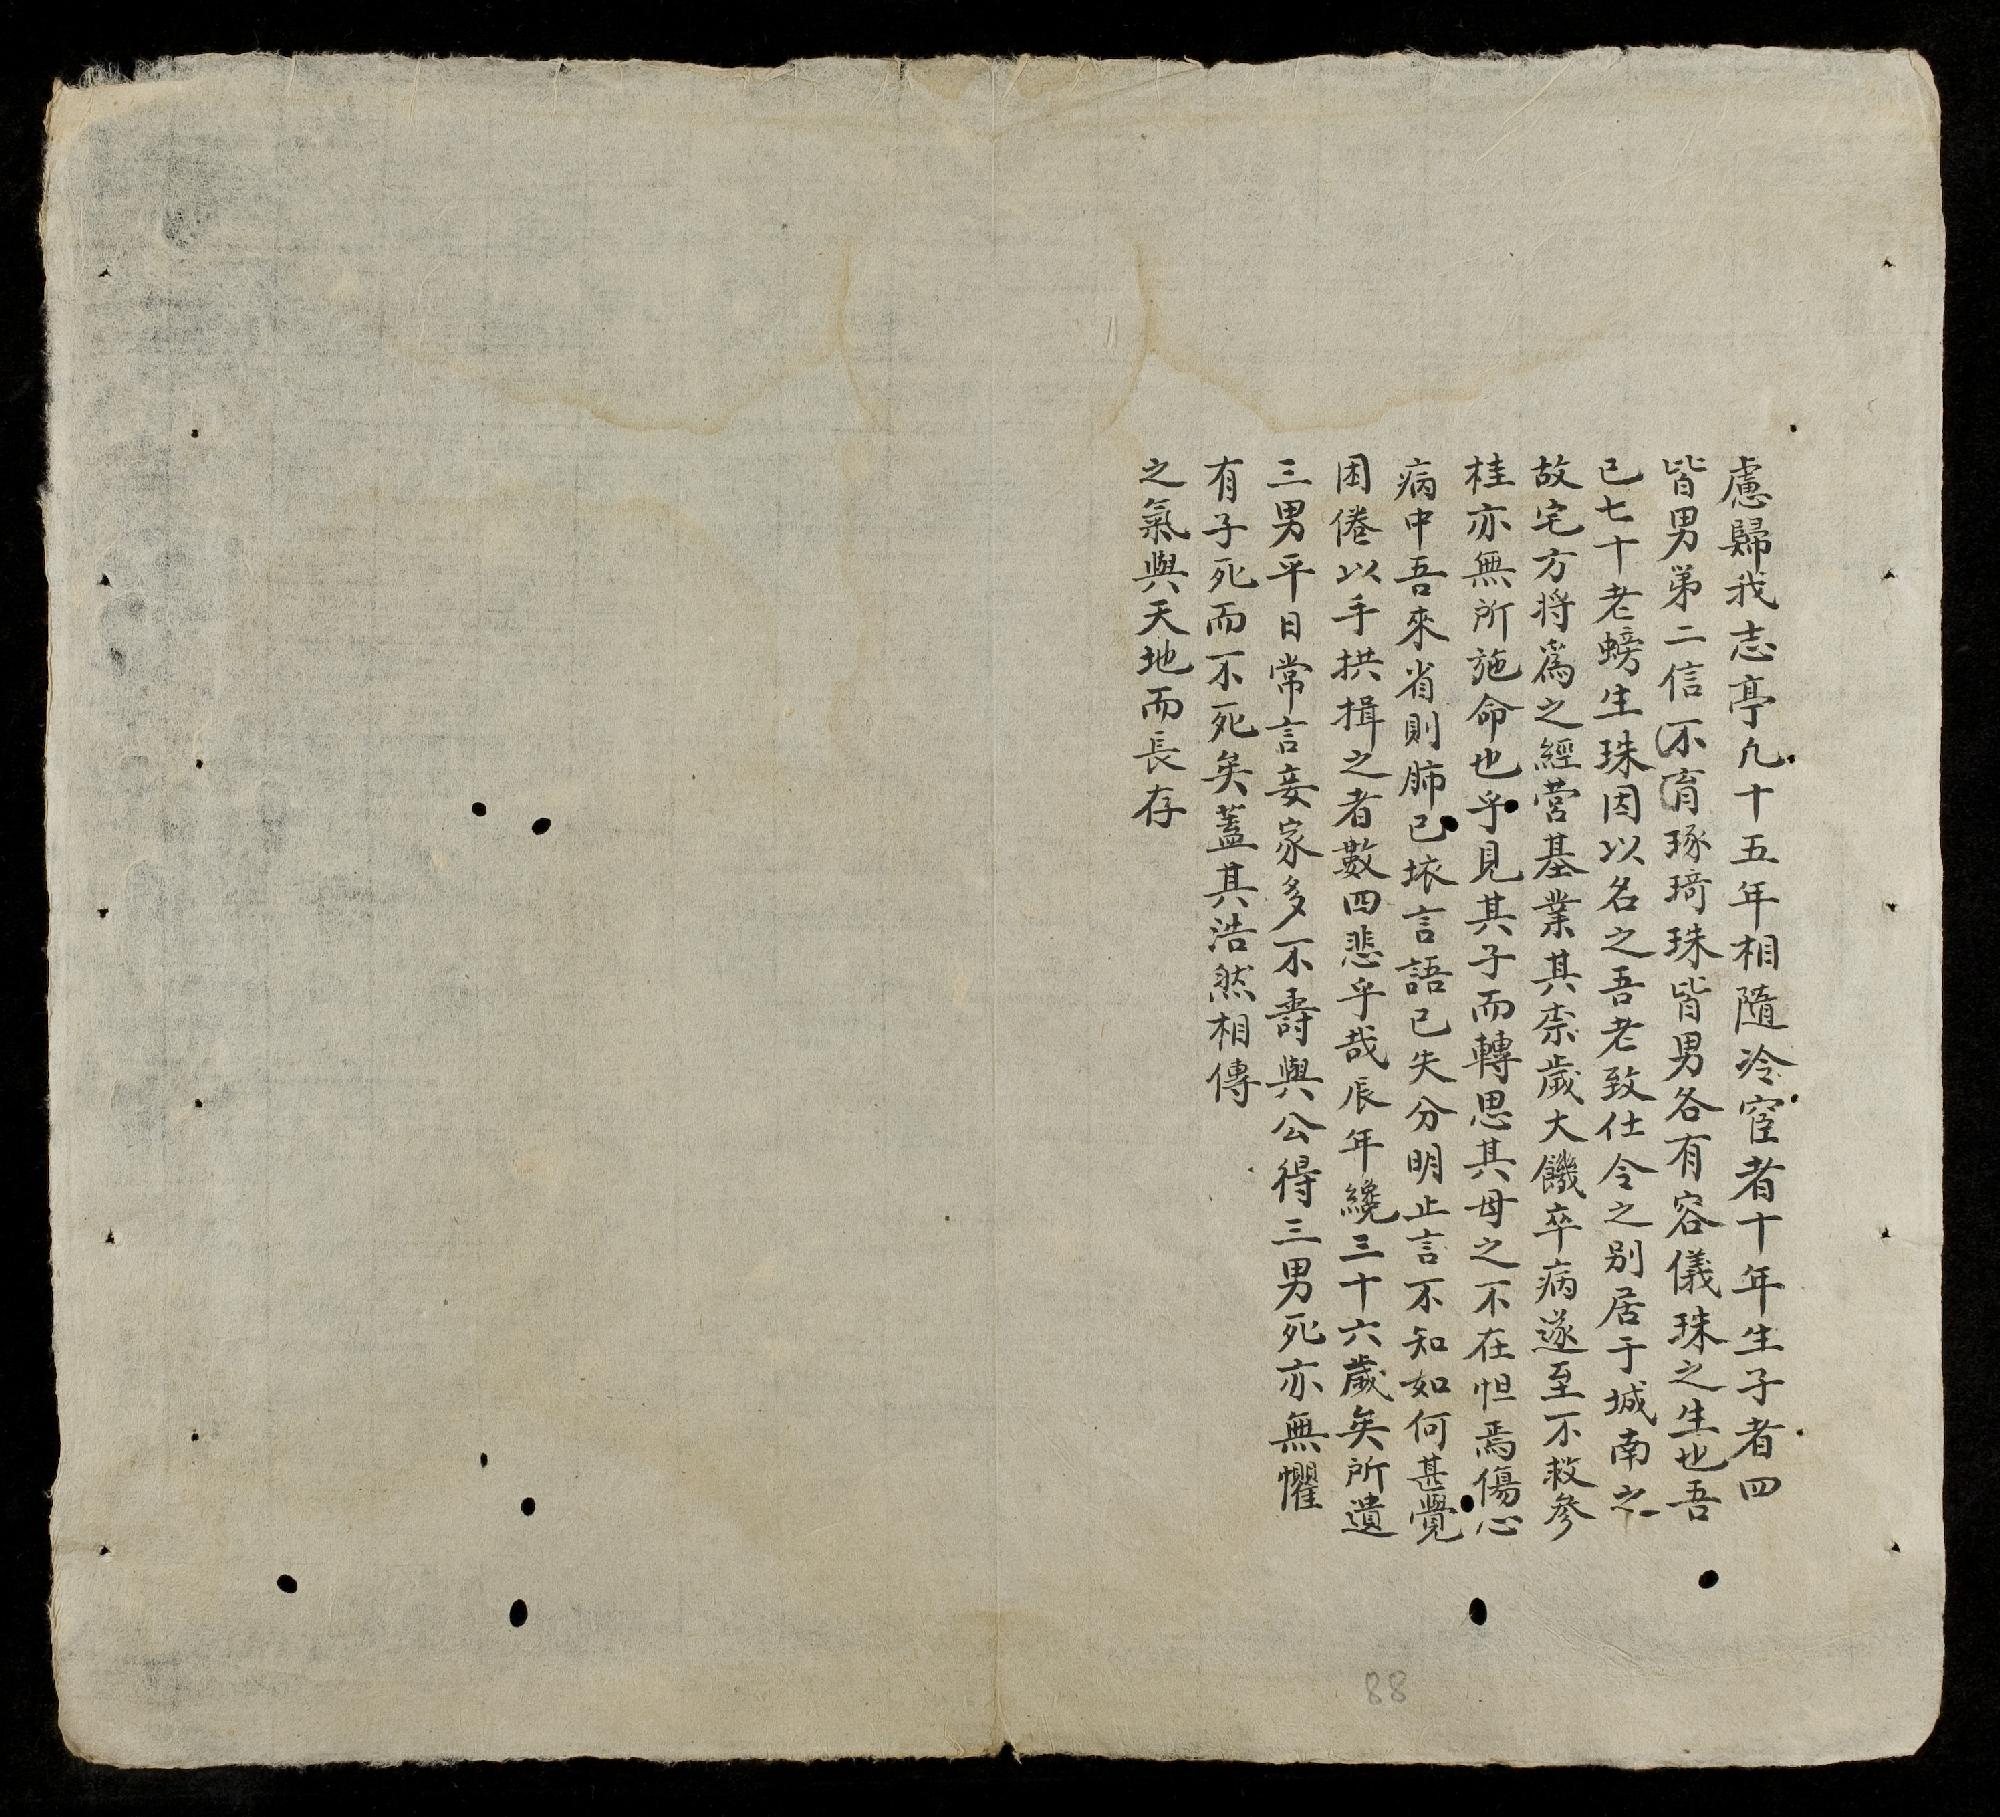 慮歸我志亭凢十五年相隨冷宦者十年生子者四
皆男第二信不育琢琦珠皆男各有容儀珠之生也吾
已七十老螃生珠因以名之吾老致仕令之别居于城南之
故宅方将爲之經营基業其柰歲大饑卒病遂至不救參
桂亦無所施命也乎見其子而轉思其母之不在怛焉傷心
病中吾來省則肺已垓言語已失分明止言不知如何甚覺
困倦以手拱揖之者數四悲乎哉辰年纔三十六歲矣所遺
三男平日常言妾家多不壽與公得三男死亦無懼
有子死而不死矣蓋其浩然相傳
之氣與天地而長存
88